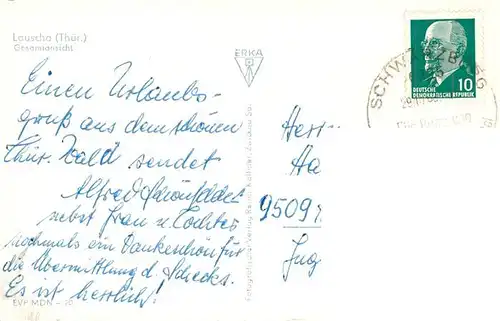 Lauscha (Thür.)
Gesamtansicht
Einen Urlaubs-
gruß aus dem schönen
Thür. Wald sendet
Alfred Schönfelder
nebst Frau u. Tochter
nochmals ein Dankeschön für
die Übermittlung d. Schecks.
Es ist herrlich!
EVP MDN -,20
ERKA
Herr
Ha
9509
Jug
10
DEUTSCHE
DEMOKRATISCHE REPUBLIK